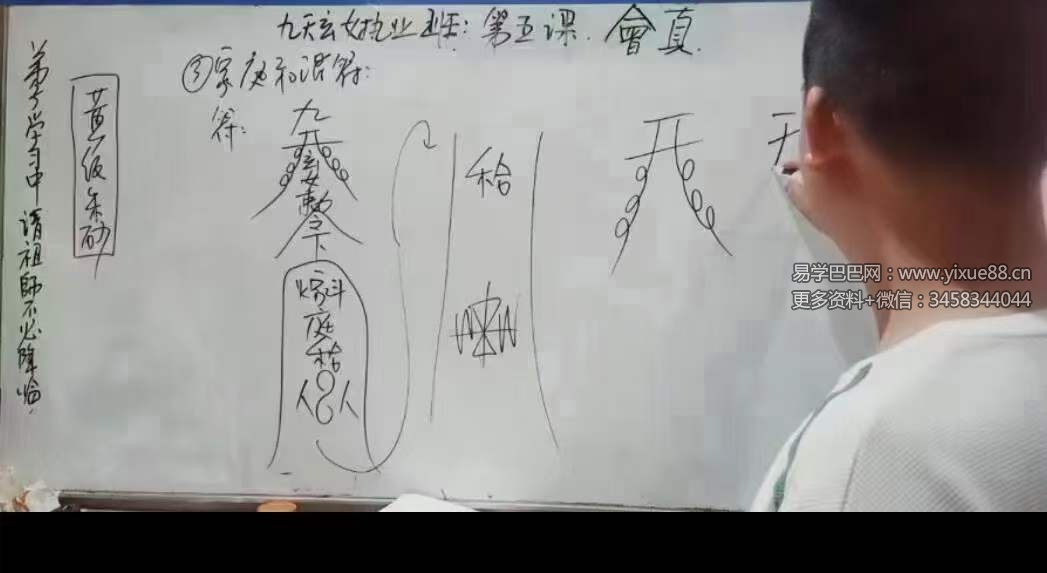 九天玄女执业班：第五课. 會真.
③家庭和谐符：
符：
弟子学习中 请祖師不必降临.
黄纸朱砂
九天玄女敕令下
家庭
人 人
和合
天
天
易学巴巴网：www.yixue88.cn
更多资料+微信：3458344044